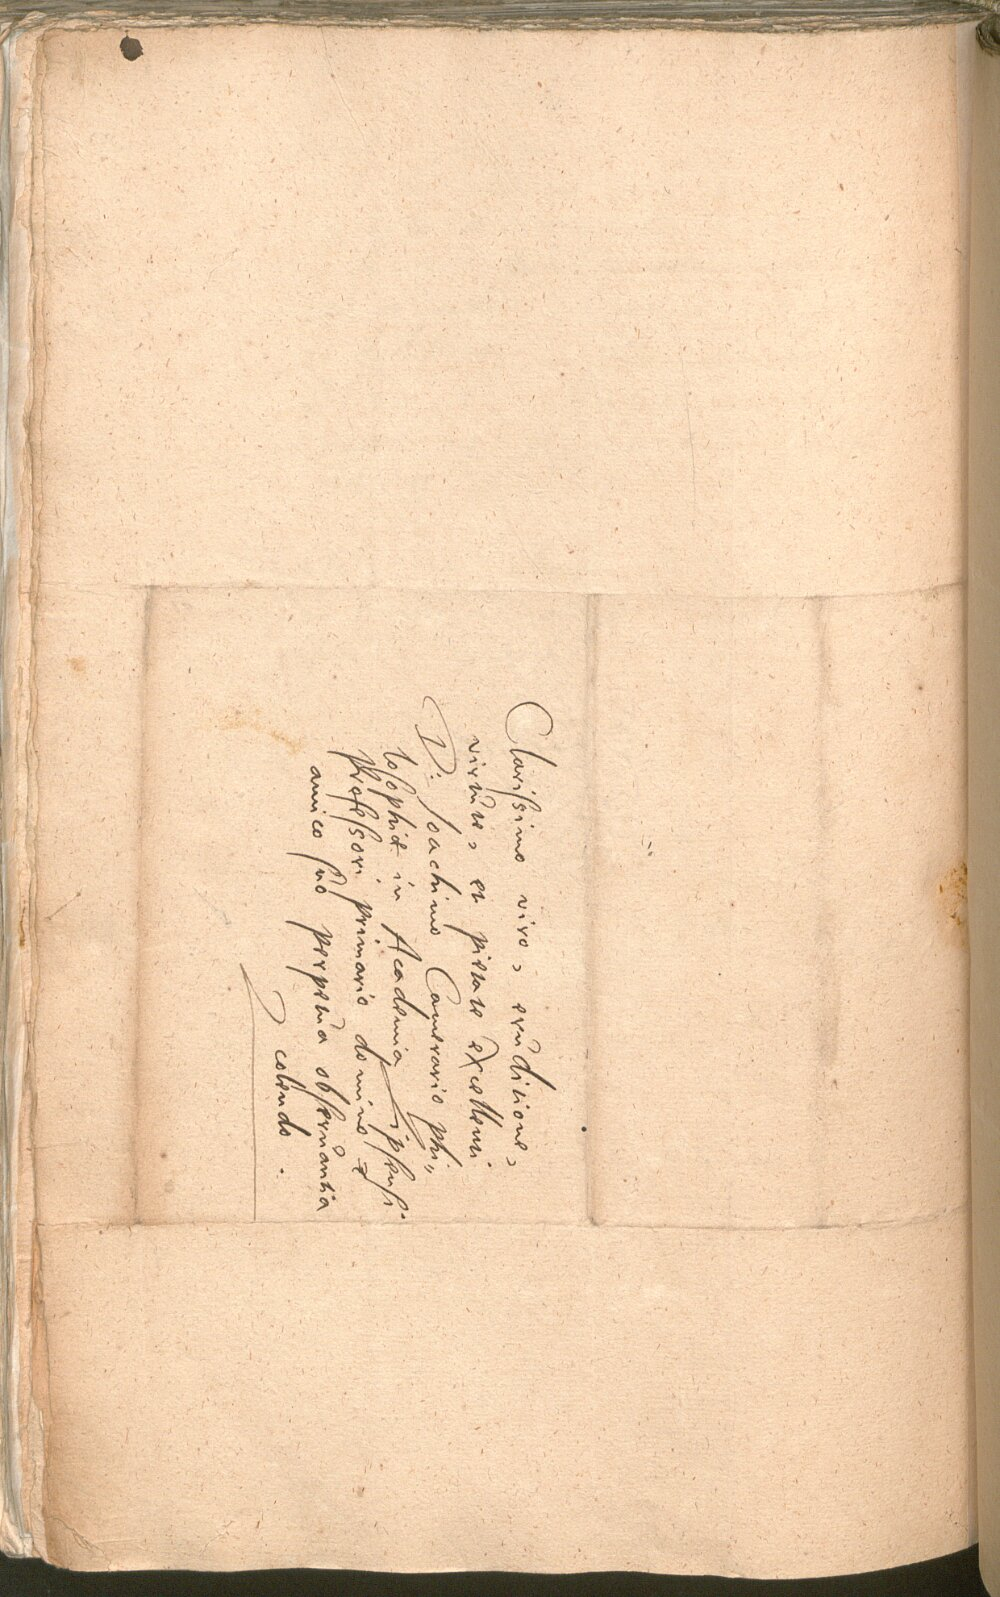 Clarissimo viro, eruditione,
virtute, et pietate excellenti
D: Joachimo Camerario phi„
losophiæ in Academia Lipsensi
professori primario domino et
amico suo perpetua observantia
colendo.